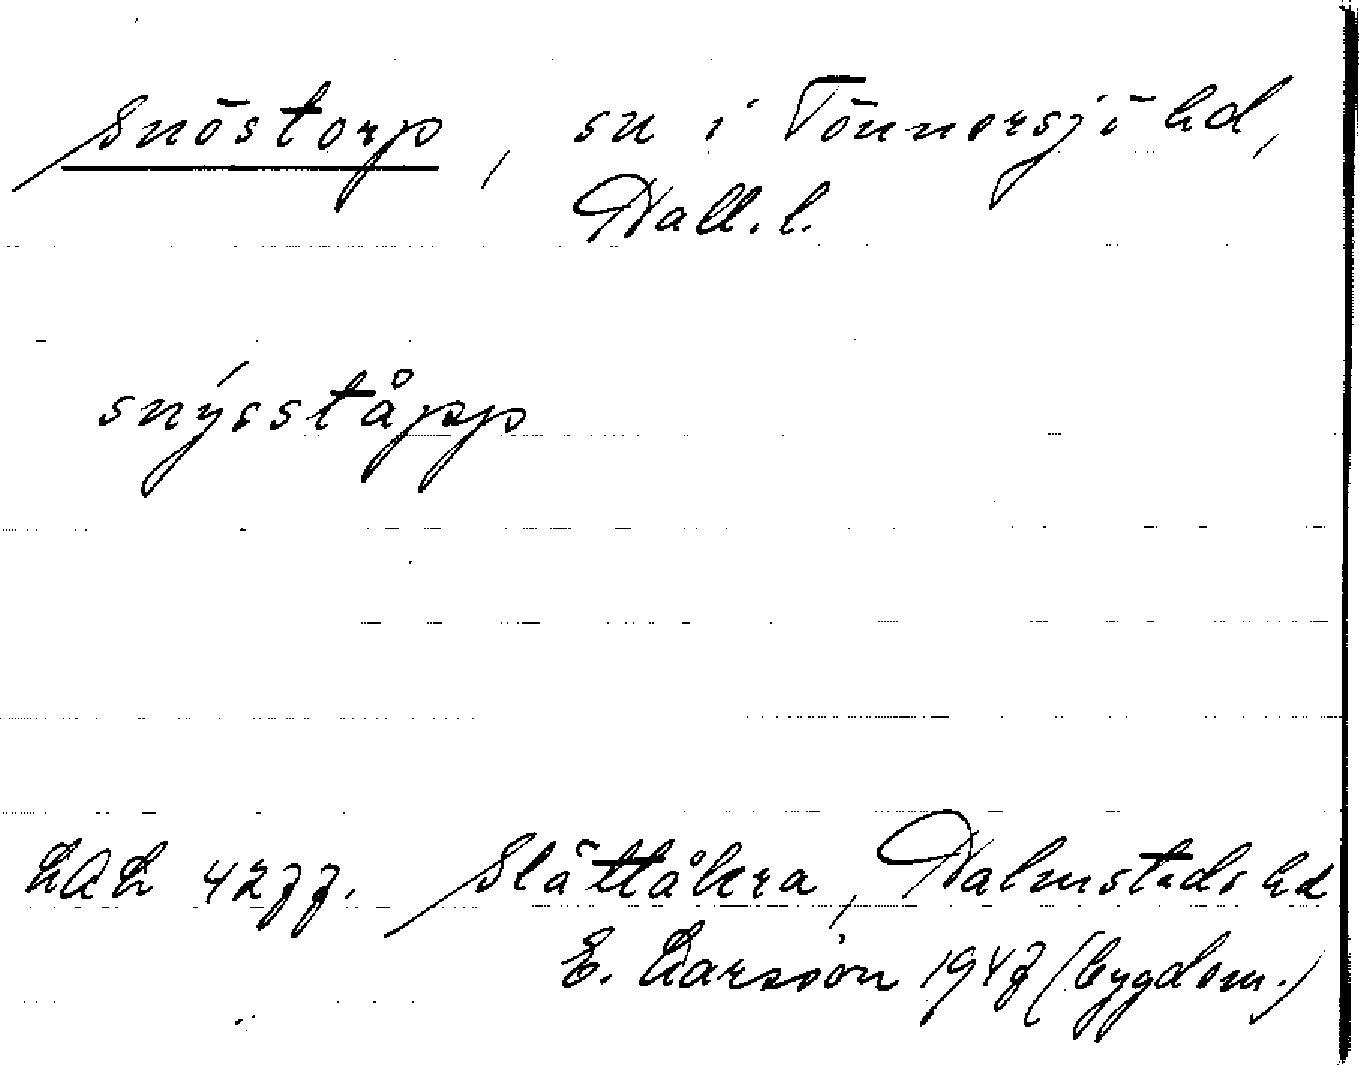 Snöstorp, sn i Tönnersjö hd,
Hall. l.
snýsståpp
LAL 4277. Slättåkra, Halmstads hd
E. Larsson 1947 (bygdem.)